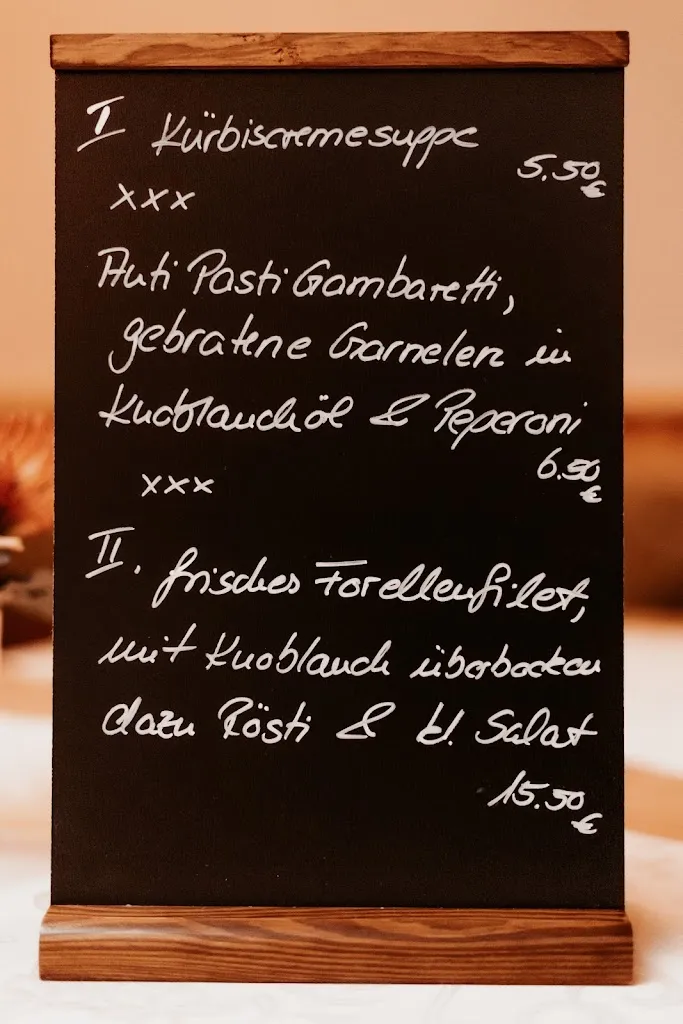 I Kürbiscremesuppe
5.50
€
xxx
Anti Pasti Gambaretti,
gebratene Garnelen in
Knoblauchöl & Peperoni
6.50
€
xxx
II. frisches Forellenfilet,
mit Knoblauch überbacken
dazu Rösti & kl. Salat
15.50
€